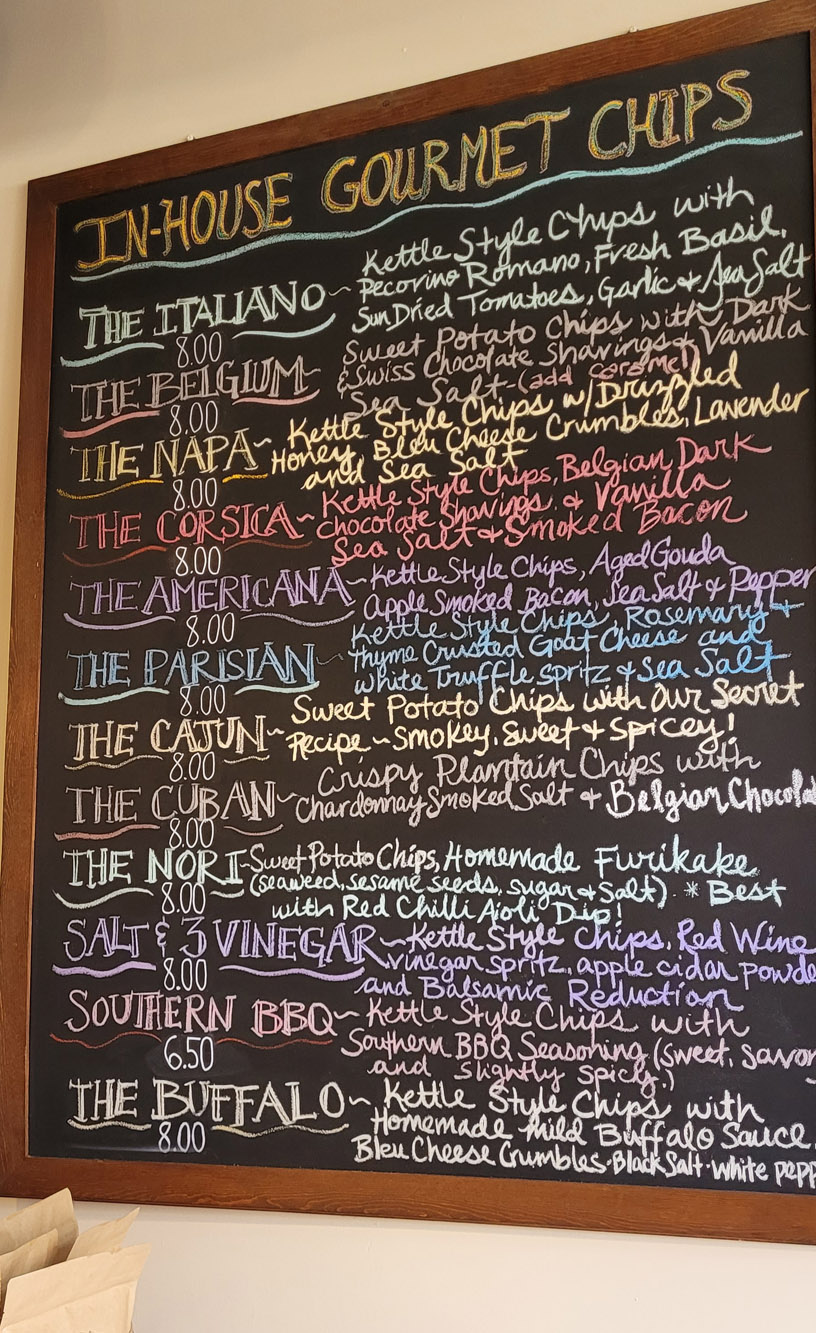 IN-HOUSE GOURMET CHIPS
THE ITALIANO ~ Kettle Style Chips with
Pecorino Romano, Fresh Basil,
Sun Dried Tomatoes, Garlic & Sea Salt
8.00
THE BELGIUM ~ Sweet Potato Chips with Dark
& Swiss Chocolate Shavings & Vanilla
Sea Salt - (add caramel)
8.00
THE NAPA ~ Kettle Style Chips w/ Drizzled
Honey, Bleu Cheese Crumbles, Lavender
and Sea Salt
8.00
THE CORSICA ~ Kettle Style Chips, Belgian Dark
Chocolate Shavings & Vanilla
Sea Salt & Smoked Bacon
8.00
THE AMERICANA ~ Kettle Style Chips, Aged Gouda
Apple Smoked Bacon, Sea Salt & Pepper
8.00
THE PARISIAN ~ Kettle Style Chips, Rosemary &
Thyme Crusted Goat Cheese and
White Truffle Spritz & Sea Salt
8.00
THE CAJUN ~ Sweet Potato Chips with our Secret
Recipe ~ Smokey, Sweet & Spicey!
8.00
THE CUBAN ~ Crispy Plantain Chips with
Chardonnay Smoked Salt & Belgian Chocola
8.00
THE NORI ~ Sweet Potato Chips, Homemade Furikake
(seaweed, sesame seeds, sugar & salt) * Best
with Red Chilli Aioli Dip!
8.00
SALT & 3 VINEGAR ~ Kettle Style Chips, Red Wine
vinegar spritz, apple cidar powde
and Balsamic Reduction
8.00
SOUTHERN BBQ ~ Kettle Style Chips with
Southern BBQ Seasoning (sweet, savor
and slightly spicy.)
6.50
THE BUFFALO ~ Kettle Style Chips with
Homemade mild Buffalo Sauce,
Bleu Cheese Crumbles · Black Salt · White pepp
8.00